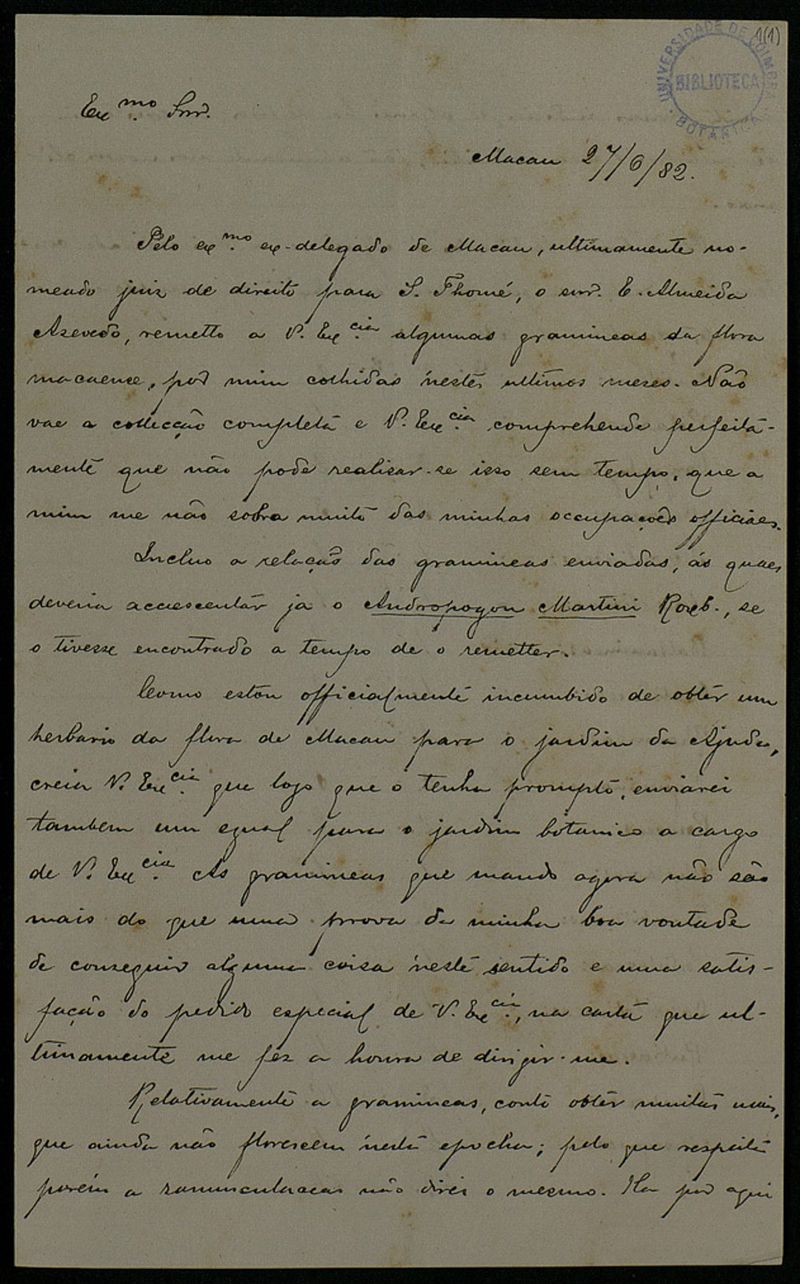 1(1)
UNIVERSIDADE DE COIMBRA
BIBLIOTECA
BOTANICA
Exmo. Snr.
Macau 27/6/82.
Pelo exmo. ex-delegado de Macau, ultimamente no-
meado juiz de direito para S. Thomé, o snr. E. Almeida
Azevedo, remetto a V. Excia. algumas gramineas da flora
macaense, por mim colhidas n'estes ultimos mezes. Não
vae a collecção completa e V. Excia. comprehende perfeita-
mente que não pode realisar-se isso sem tempo, que a
mim me não sobra muito das minhas occupações officiaes.
Incluo a relação das gramineas enviadas, ás quaes
deveria accrescentar já o Andropogon Martini Roxb., se
o tivesse encontrado a tempo de o remetter.
Como estou officialmente incumbido de obter um
herbario da flora de Macau para o jardim da Ajuda,
creia V. Excia. que logo que o tenha prompto, enviarei
tambem um egual para o jardim botanico a cargo
de V. Excia. As gramineas que mando agora não são
mais do que uma prova da minha boa vontade
de conseguir alguma coisa n'este sentido e uma satis-
fação do pedido especial de V. Excia., na carta que ul-
timamente me fez a honra de dirigir-me.
Relativamente a gramineas, conto obter muitas mais,
que ainda não florescem n'esta epocha; pelo que respeita
porém a ranunculaceas não direi o mesmo. Ha por aqui